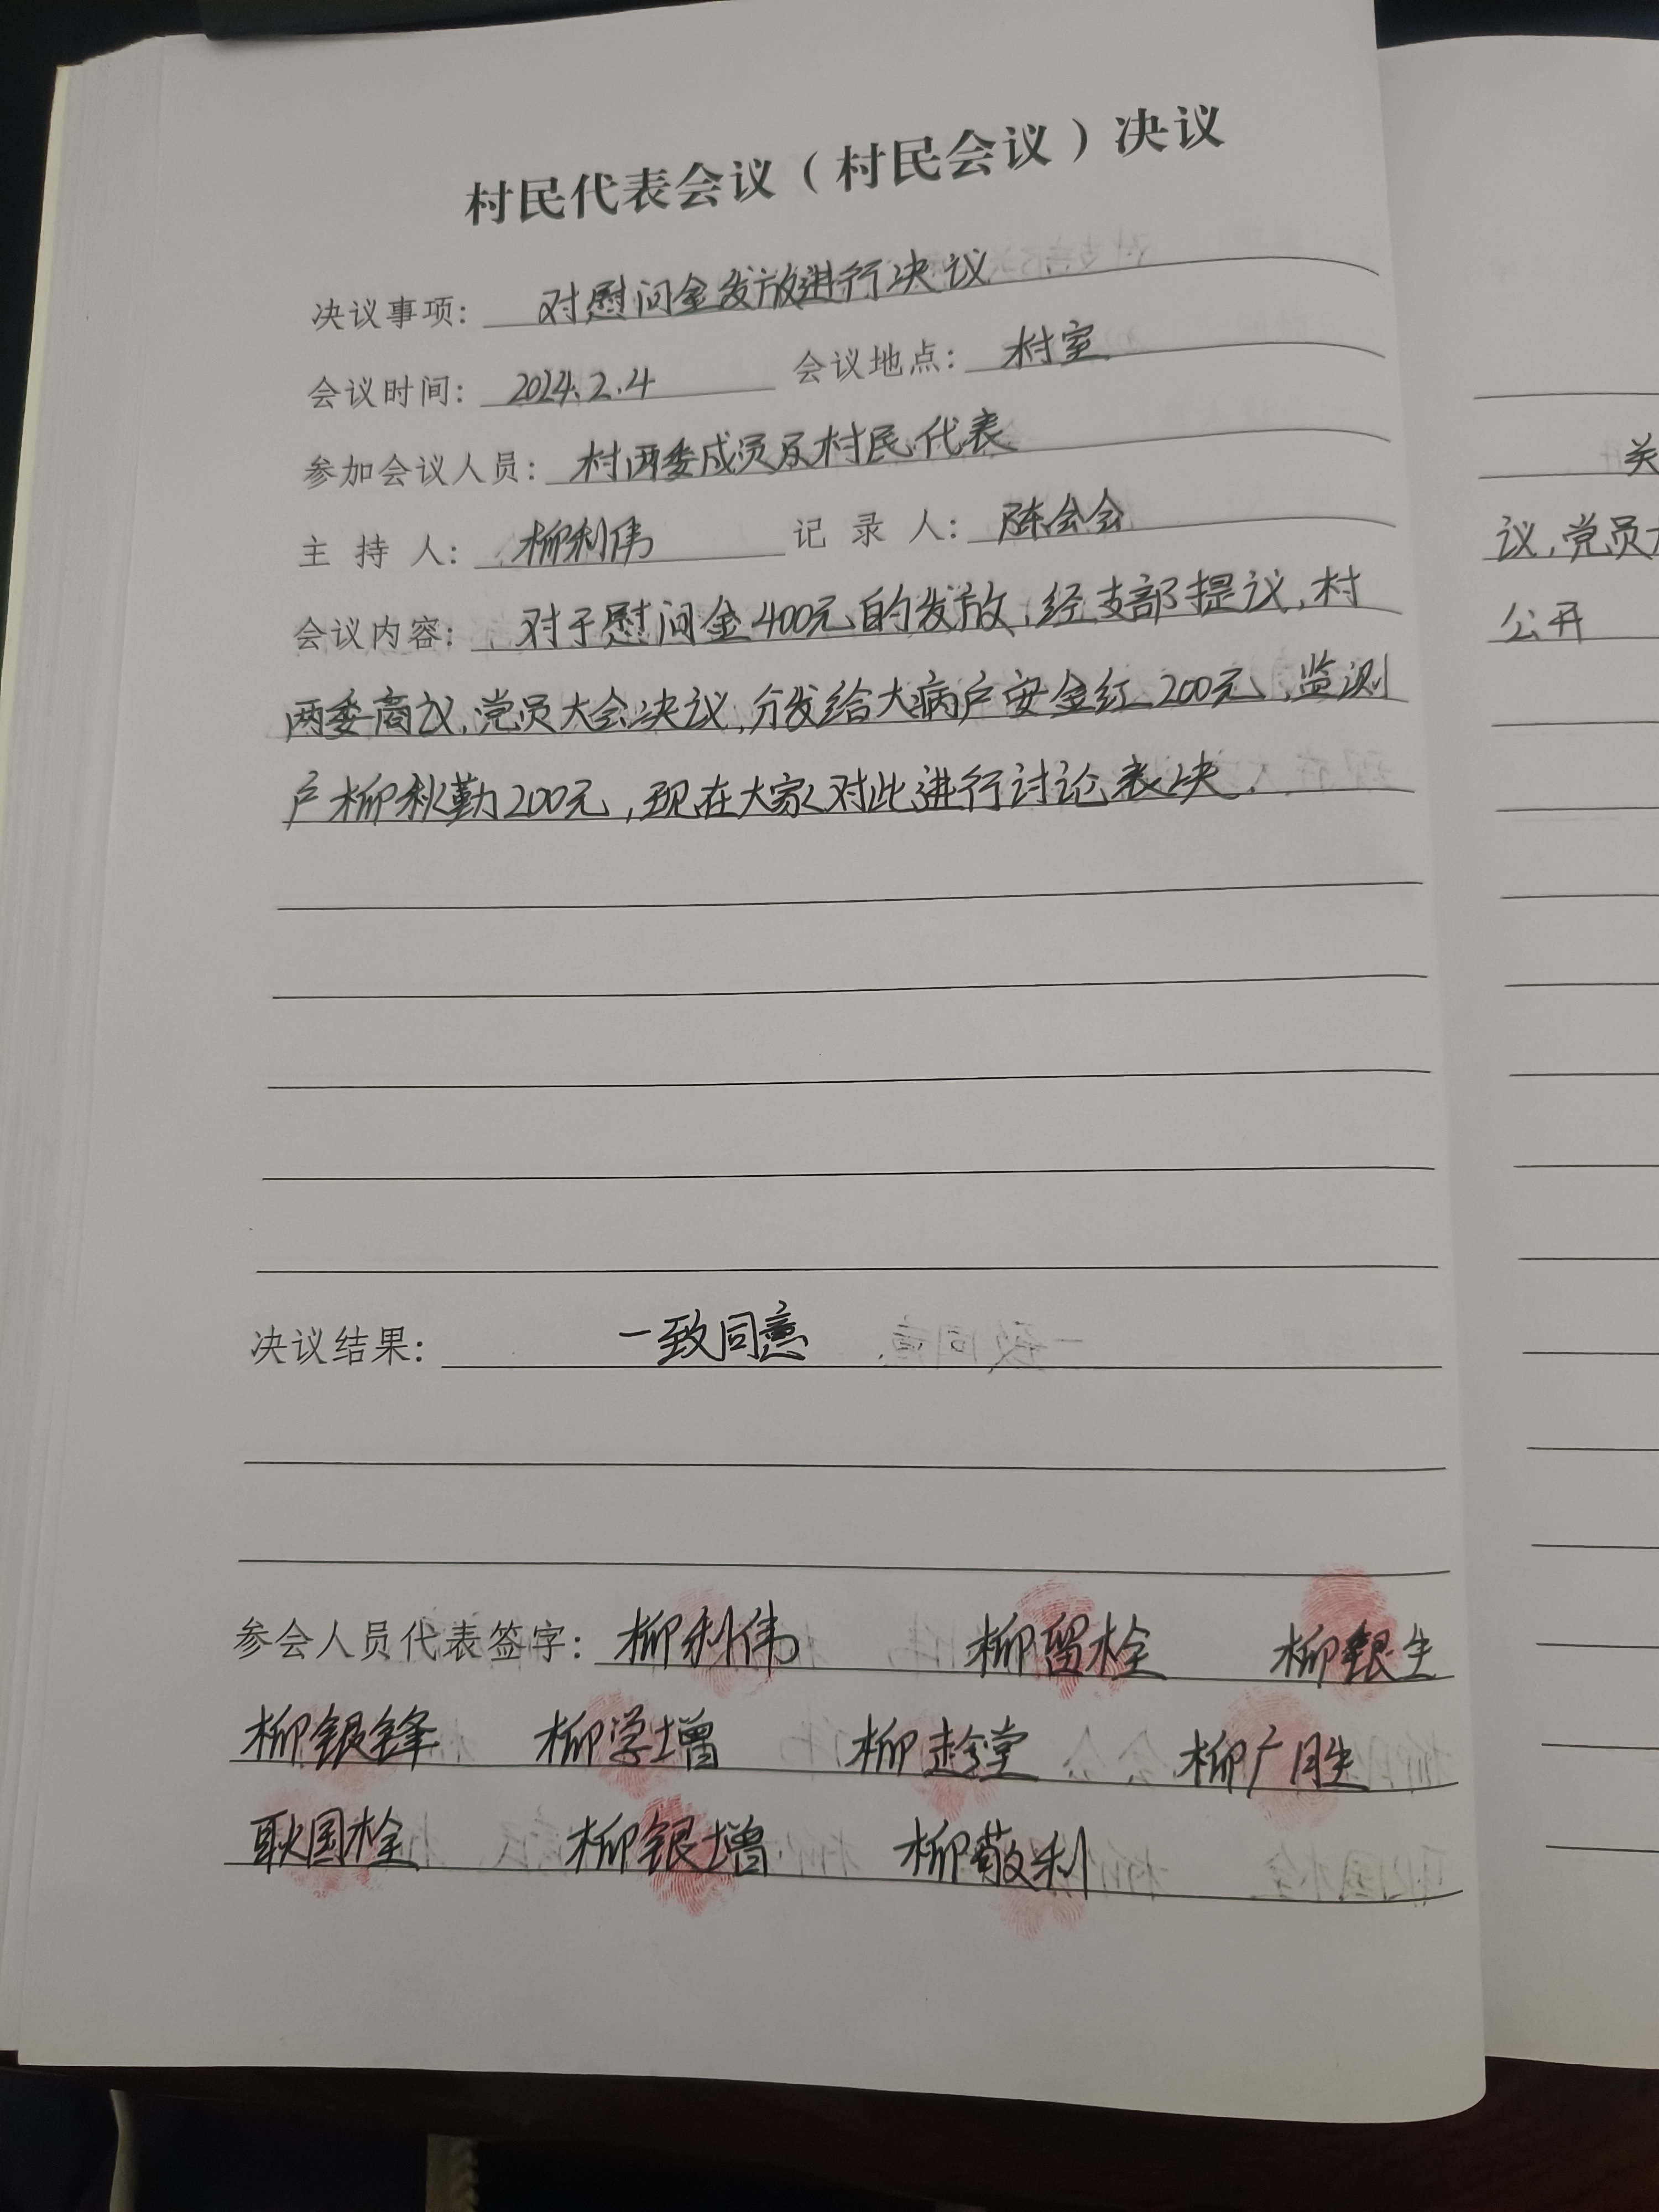 村民代表会议（村民会议）决议
决议事项： 对慰问金发放进行决议
会议时间： 2024.2.4 会议地点： 村室
参加会议人员： 村两委成员及村民代表
主 持 人： 柳利伟 记 录 人： 陈会会
会议内容： 对于慰问金400元的发放，经支部提议，村
两委商议，党员大会决议，分发给大病户安金红200元，监测
户柳秋勤200元，现在大家对此进行讨论表决．
决议结果： 一致同意
参会人员代表签字： 柳利伟 柳留栓 柳银生
柳银锋 柳学增 柳趁堂 柳广胜
耿国栓 柳银增 柳敬利
关
议，党员大
公开